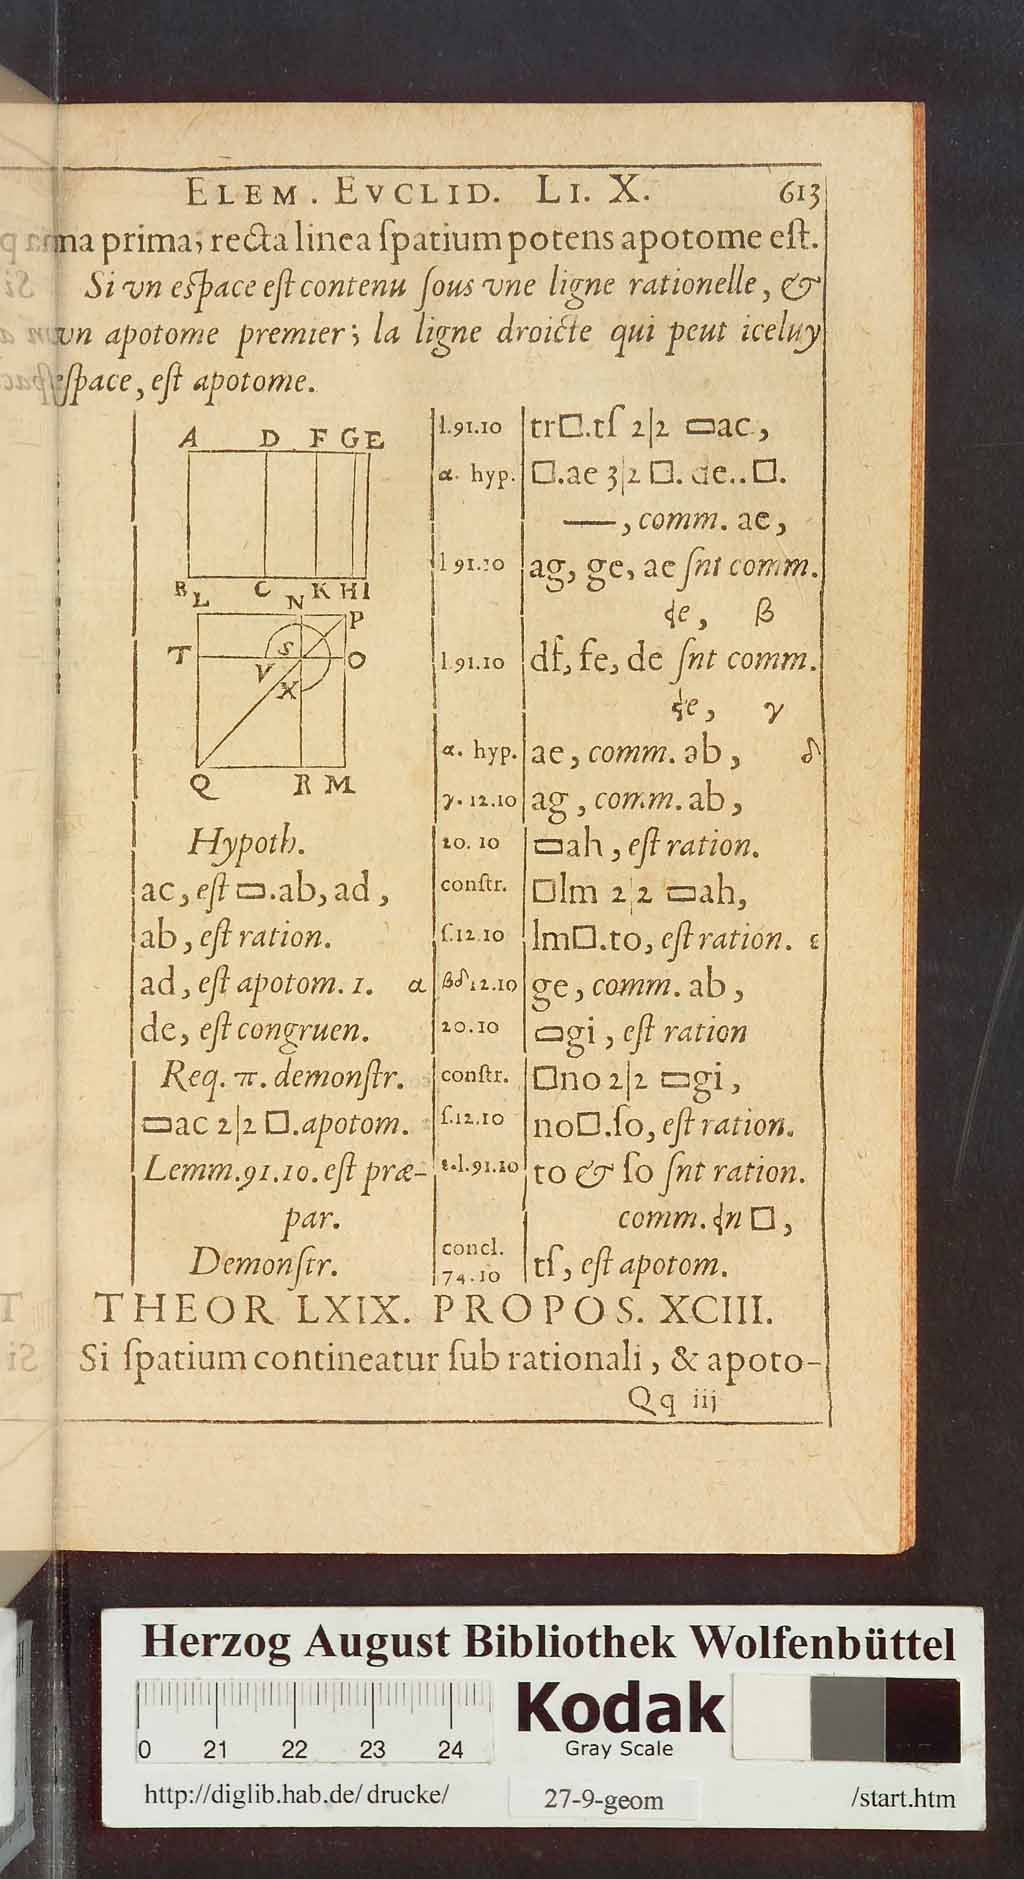 ELEM. EVCLID. LI. X. 613
ma prima, recta linea ſpatium potens apotome eſt.
Si vn eſpace eſt contenu ſous vne ligne rationelle, &
vn apotome premier; la ligne droicte qui peut iceluy
eſpace, eſt apotome.
A D F G E
B C K H I
L N P
T S O
V X
Q R M
Hypoth.
ac, eſt ▭.ab, ad,
ab, eſt ration.
ad, eſt apotom. 1. α
de, eſt congruen.
Req. π. demonſtr.
▭ac 2|2 □.apotom.
Lemm.91.10. eſt præ-
par.
Demonſtr.
l.91.10 tr□.tſ 2|2 ▭ac,
α. hyp. □.ae 3|2 □. de..□.
—, comm. ae,
l 91.10 ag, ge, ae ſnt comm.
ɖe, β
l.91.10 df, fe, de ſnt comm.
ɖe, γ
α. hyp. ae, comm. ab, δ
γ. 12.10 ag, comm. ab,
20. 10 ▭ah, eſt ration.
conſtr. □lm 2|2 ▭ah,
ſ.12.10 lm□.to, eſt ration. ε
βδ 12.10 ge, comm. ab,
20.10 ▭gi, eſt ration
conſtr. □no 2|2 ▭gi,
ſ.12.10 no□.ſo, eſt ration.
ε.l.91.10 to & ſo ſnt ration.
comm. ɖn □,
concl.
74.10 tſ, eſt apotom.
THEOR LXIX. PROPOS. XCIII.
Si ſpatium contineatur ſub rationali, & apoto-
Qq iij
Herzog August Bibliothek Wolfenbüttel
0 21 22 23 24
Kodak
Gray Scale
http://diglib.hab.de/drucke/ 27-9-geom /start.htm